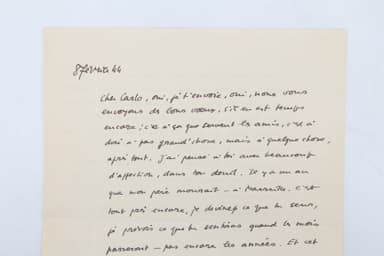 8 février 44
Cher Carlo, oui, je t'envoie, oui, nous vous
envoyons de bons voeux. S'il en est temps
encore ; c'est à ça que servent les amis, c'est-à-
dire à pas grand'chose, mais à quelque chose,
après tout. J'ai pensé à toi avec beaucoup
d'affection, dans ton deuil. Il y a un an
que mon père mourait – à Marseille. C'est
tout près encore, je ce que tu sens,
je prévois ce que tu sentiras quand les mois
passeront – pas encore les années. Et cet